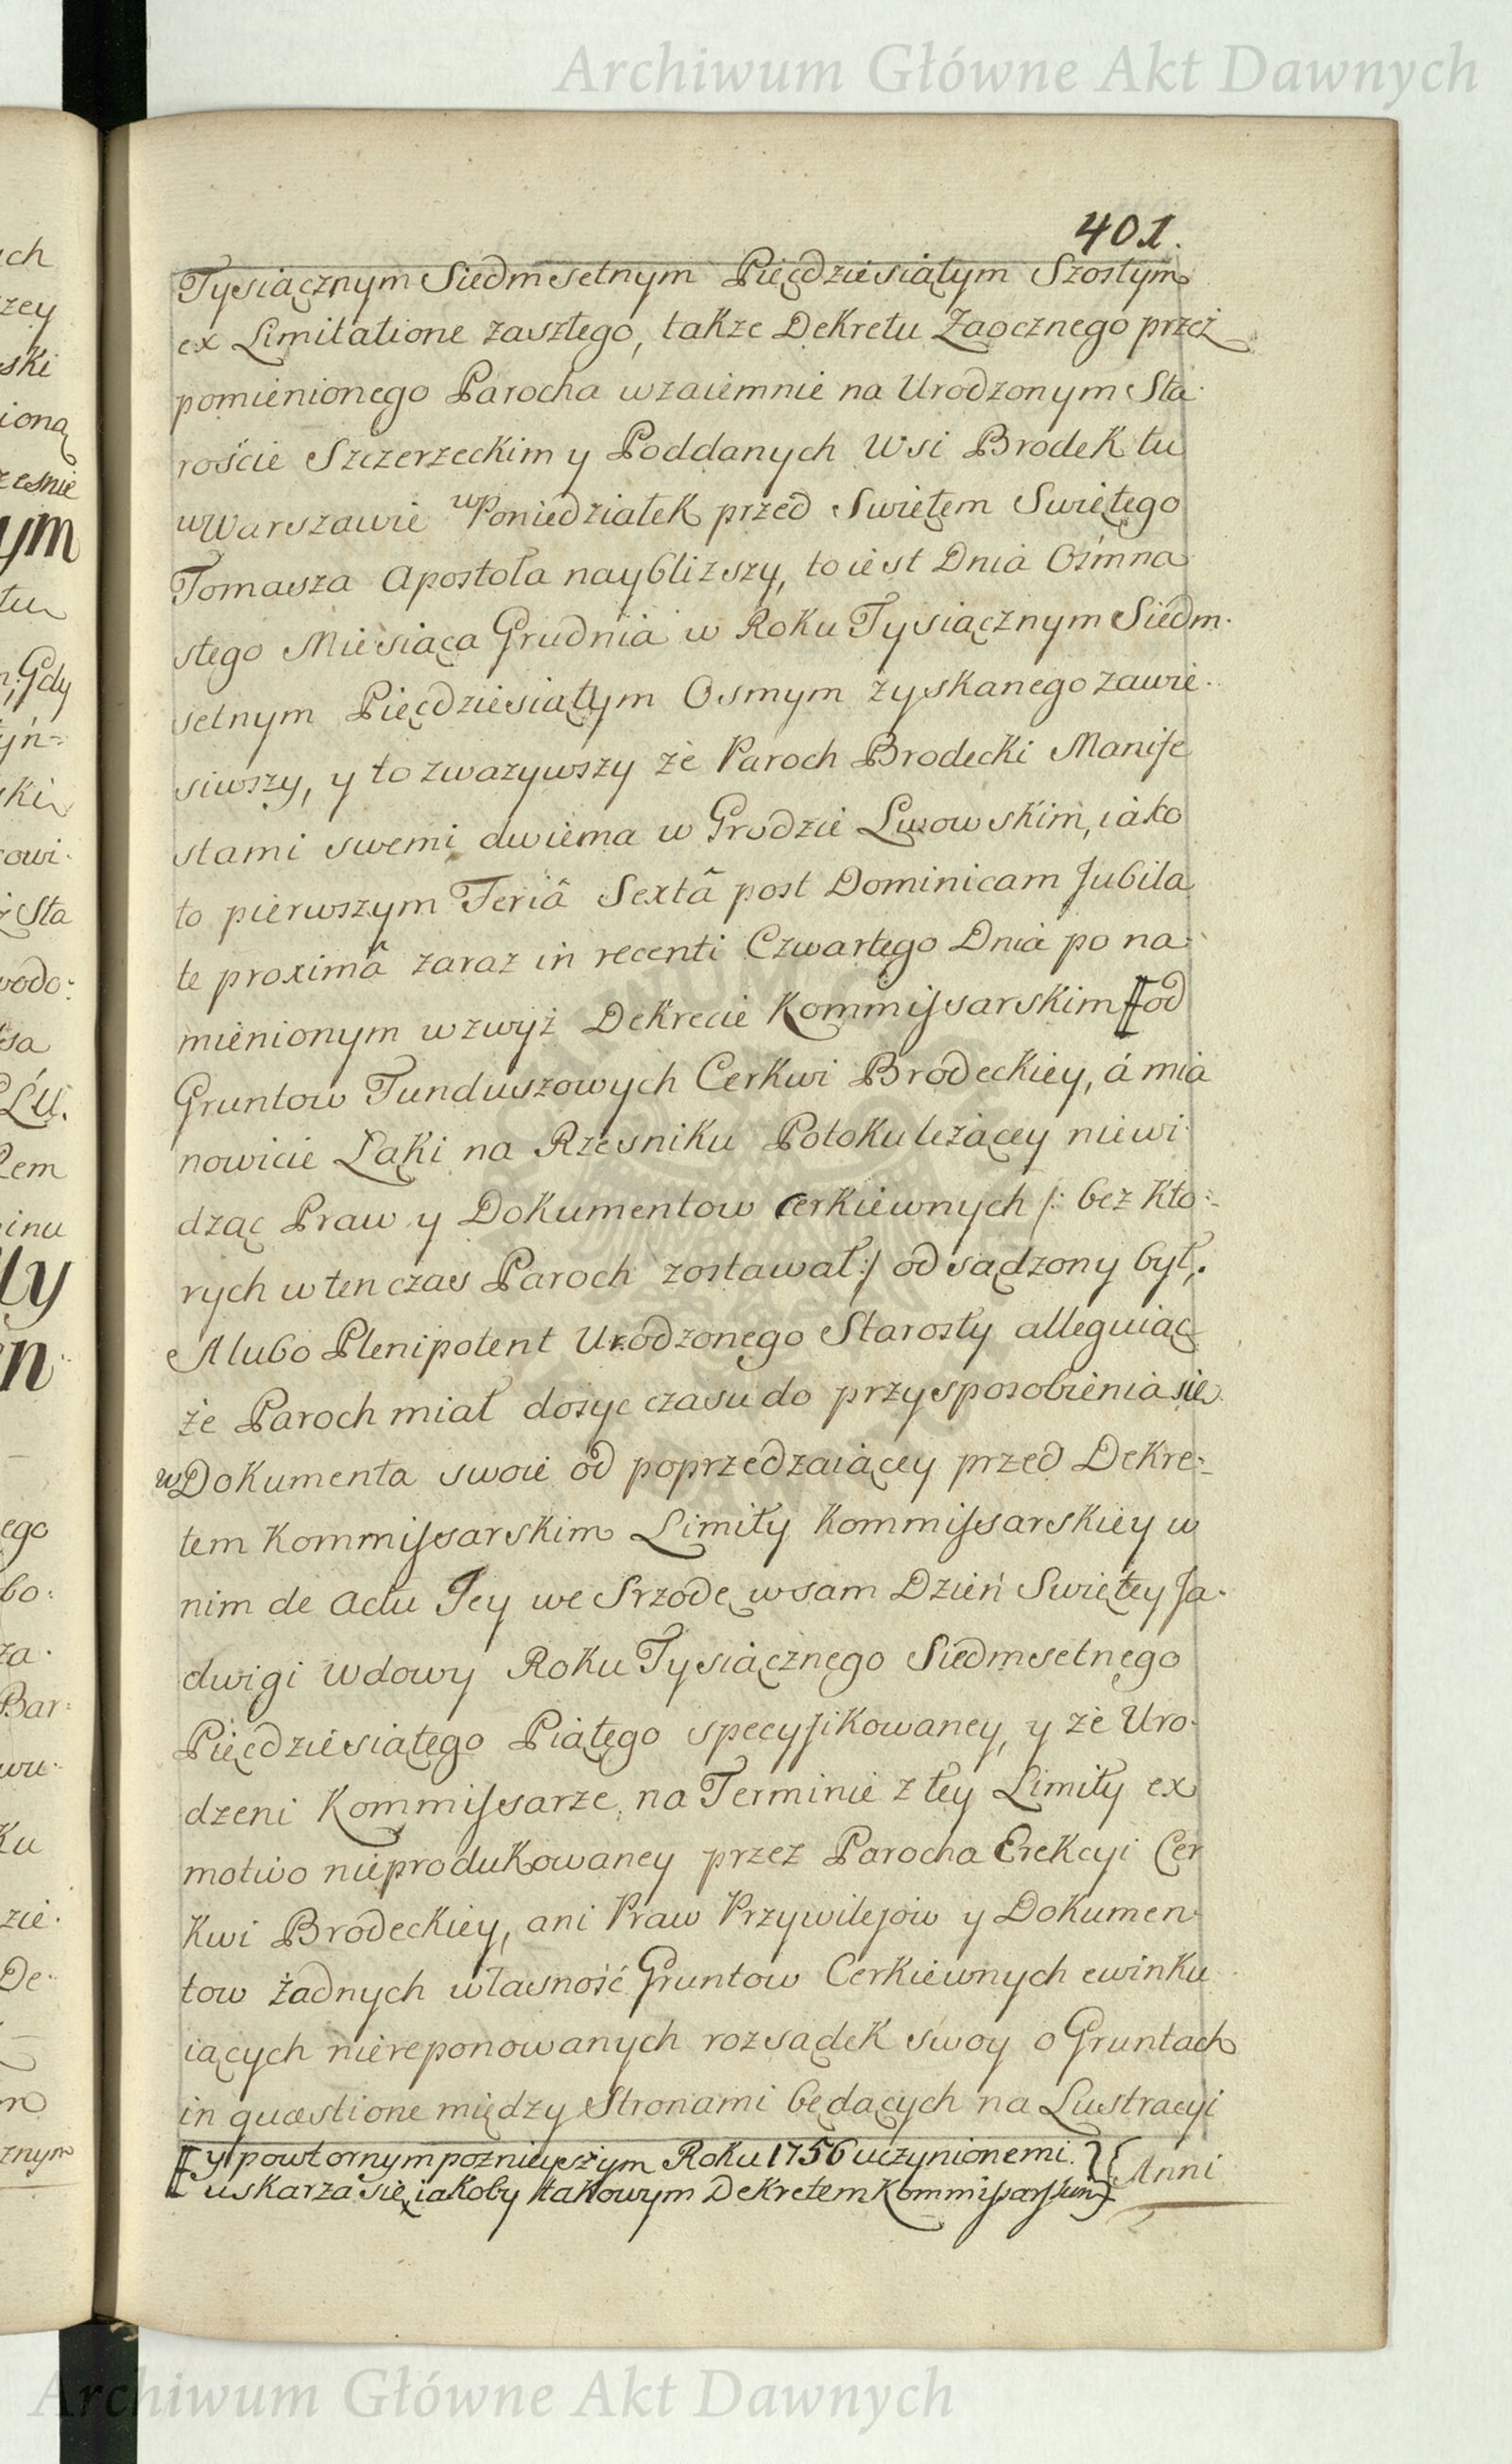 Archiwum Główne Akt Dawnych
401.
Tysiącznym Siedmsetnym Pięcdziesiątym Szostym
ex Limitatione zaszłego, takze Dekretu Zaocznego przez
pomienionego Parocha wzaiemnie na Urodzonym Sta-
roście Szczerzeckim y Poddanych Wsi Brodek tu
w Warszawie w Poniedziałek przed Swiętem Swiętego
Tomasza Apostoła nayblizszy, to iest Dnia Ośmna
stego Miesiąca Grudnia w Roku Tysiącznym Siedm-
setnym Pięcdziesiątym Osmym zyskanego zawie-
siwszy, y to zwazywszy że Paroch Brodecki Manife
stami swemi dwiema w Grodzie Lwowskim, iako
to pierwszym Feriâ Sextâ post Dominicam Jubila
te proximâ zaraz in recenti Czwartego Dnia po na-
mienionym wzwyż Dekrecie Kommissarskim [od
Gruntow Funduszowych Cerkwi Brodeckiey, á mia
nowicie Łąki na Rzesniku Potoku leżącey niewi
dząc Praw y Dokumentow Cerkiewnych /: bez kto-
rych wten czas Paroch zostawał :/ odsądzony był.
A lubo Plenipotent Urodzonego Starosty alleguiąc
że Paroch miał dosyc czasu do przysposobienia się
w Dokumenta swoie od poprzedzaiącey przed Dekre-
tem Kommissarskim Limity Kommissarskiey w
nim de Actu Jey we Srzodę w sam Dzień Swiętey Ja-
dwigi Wdowy Roku Tysiącznego Siedmsetnego
Pięcdziesiątego Piątego specyfikowaney, y że Uro-
dzeni Kommissarze na Terminie z tey Limity ex
motivo nieprodukowaney przez Parocha Erekcyi Cer
kwi Brodeckiey, ani Praw Przywilejow y Dokumen-
tow żadnych własność Gruntow Cerkiewnych ewinku
iących niereponowanych rozsądek swoy o Gruntach
in quæstione między Stronami będących na Lustracyi
[y powtornym poznieyszym Roku 1756 uczynionemi
uskarza się, iakoby takowym Dekretem Kommissarskim]
Anni
Archiwum Główne Akt Dawnych